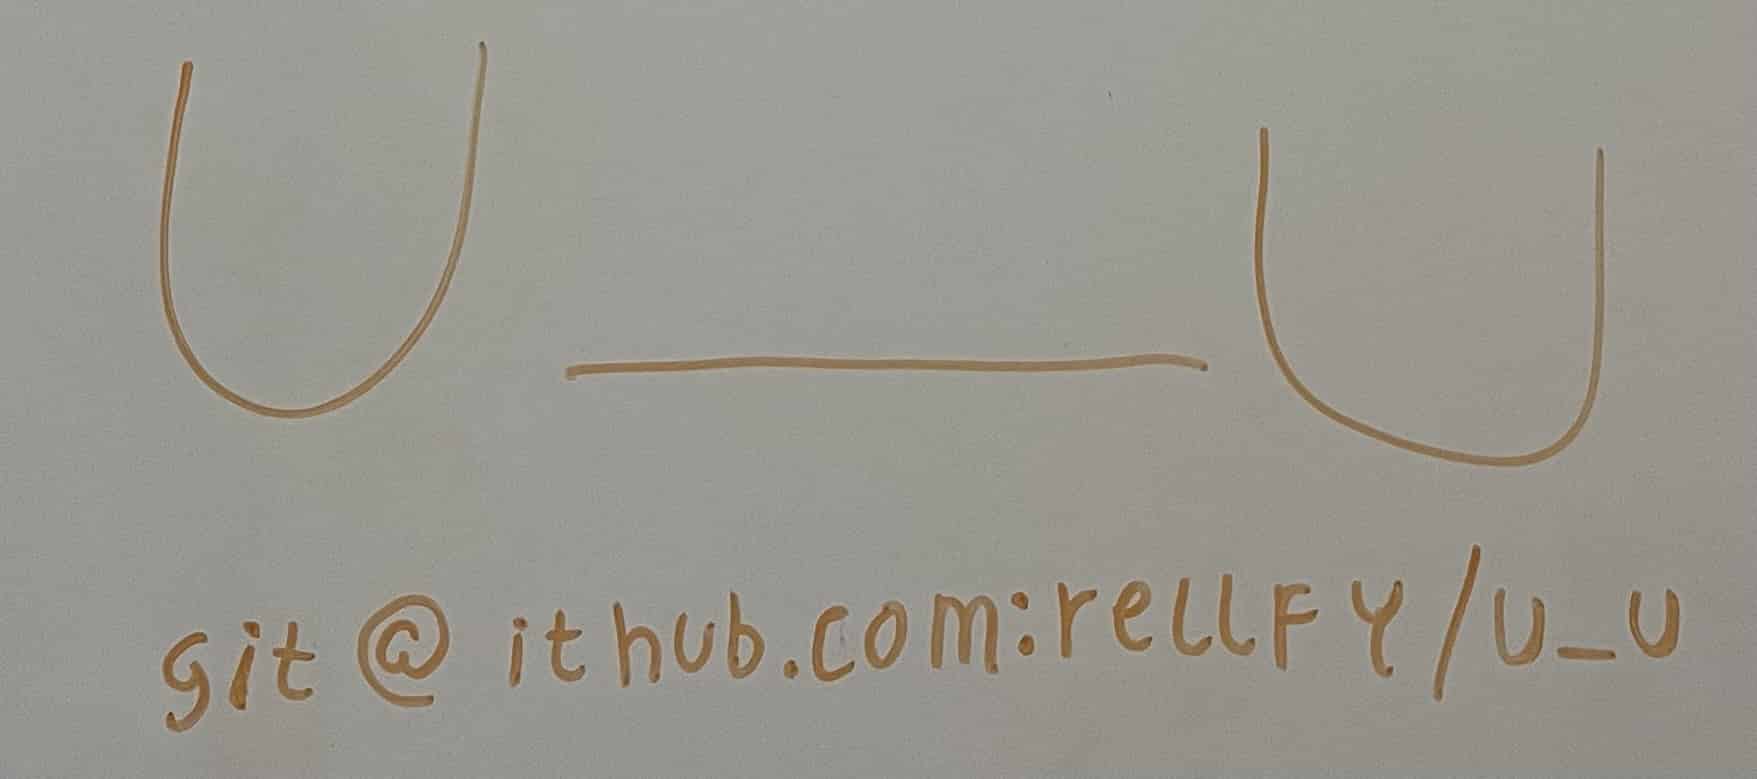 U_U
git@ithub.com:rellFY/U_U